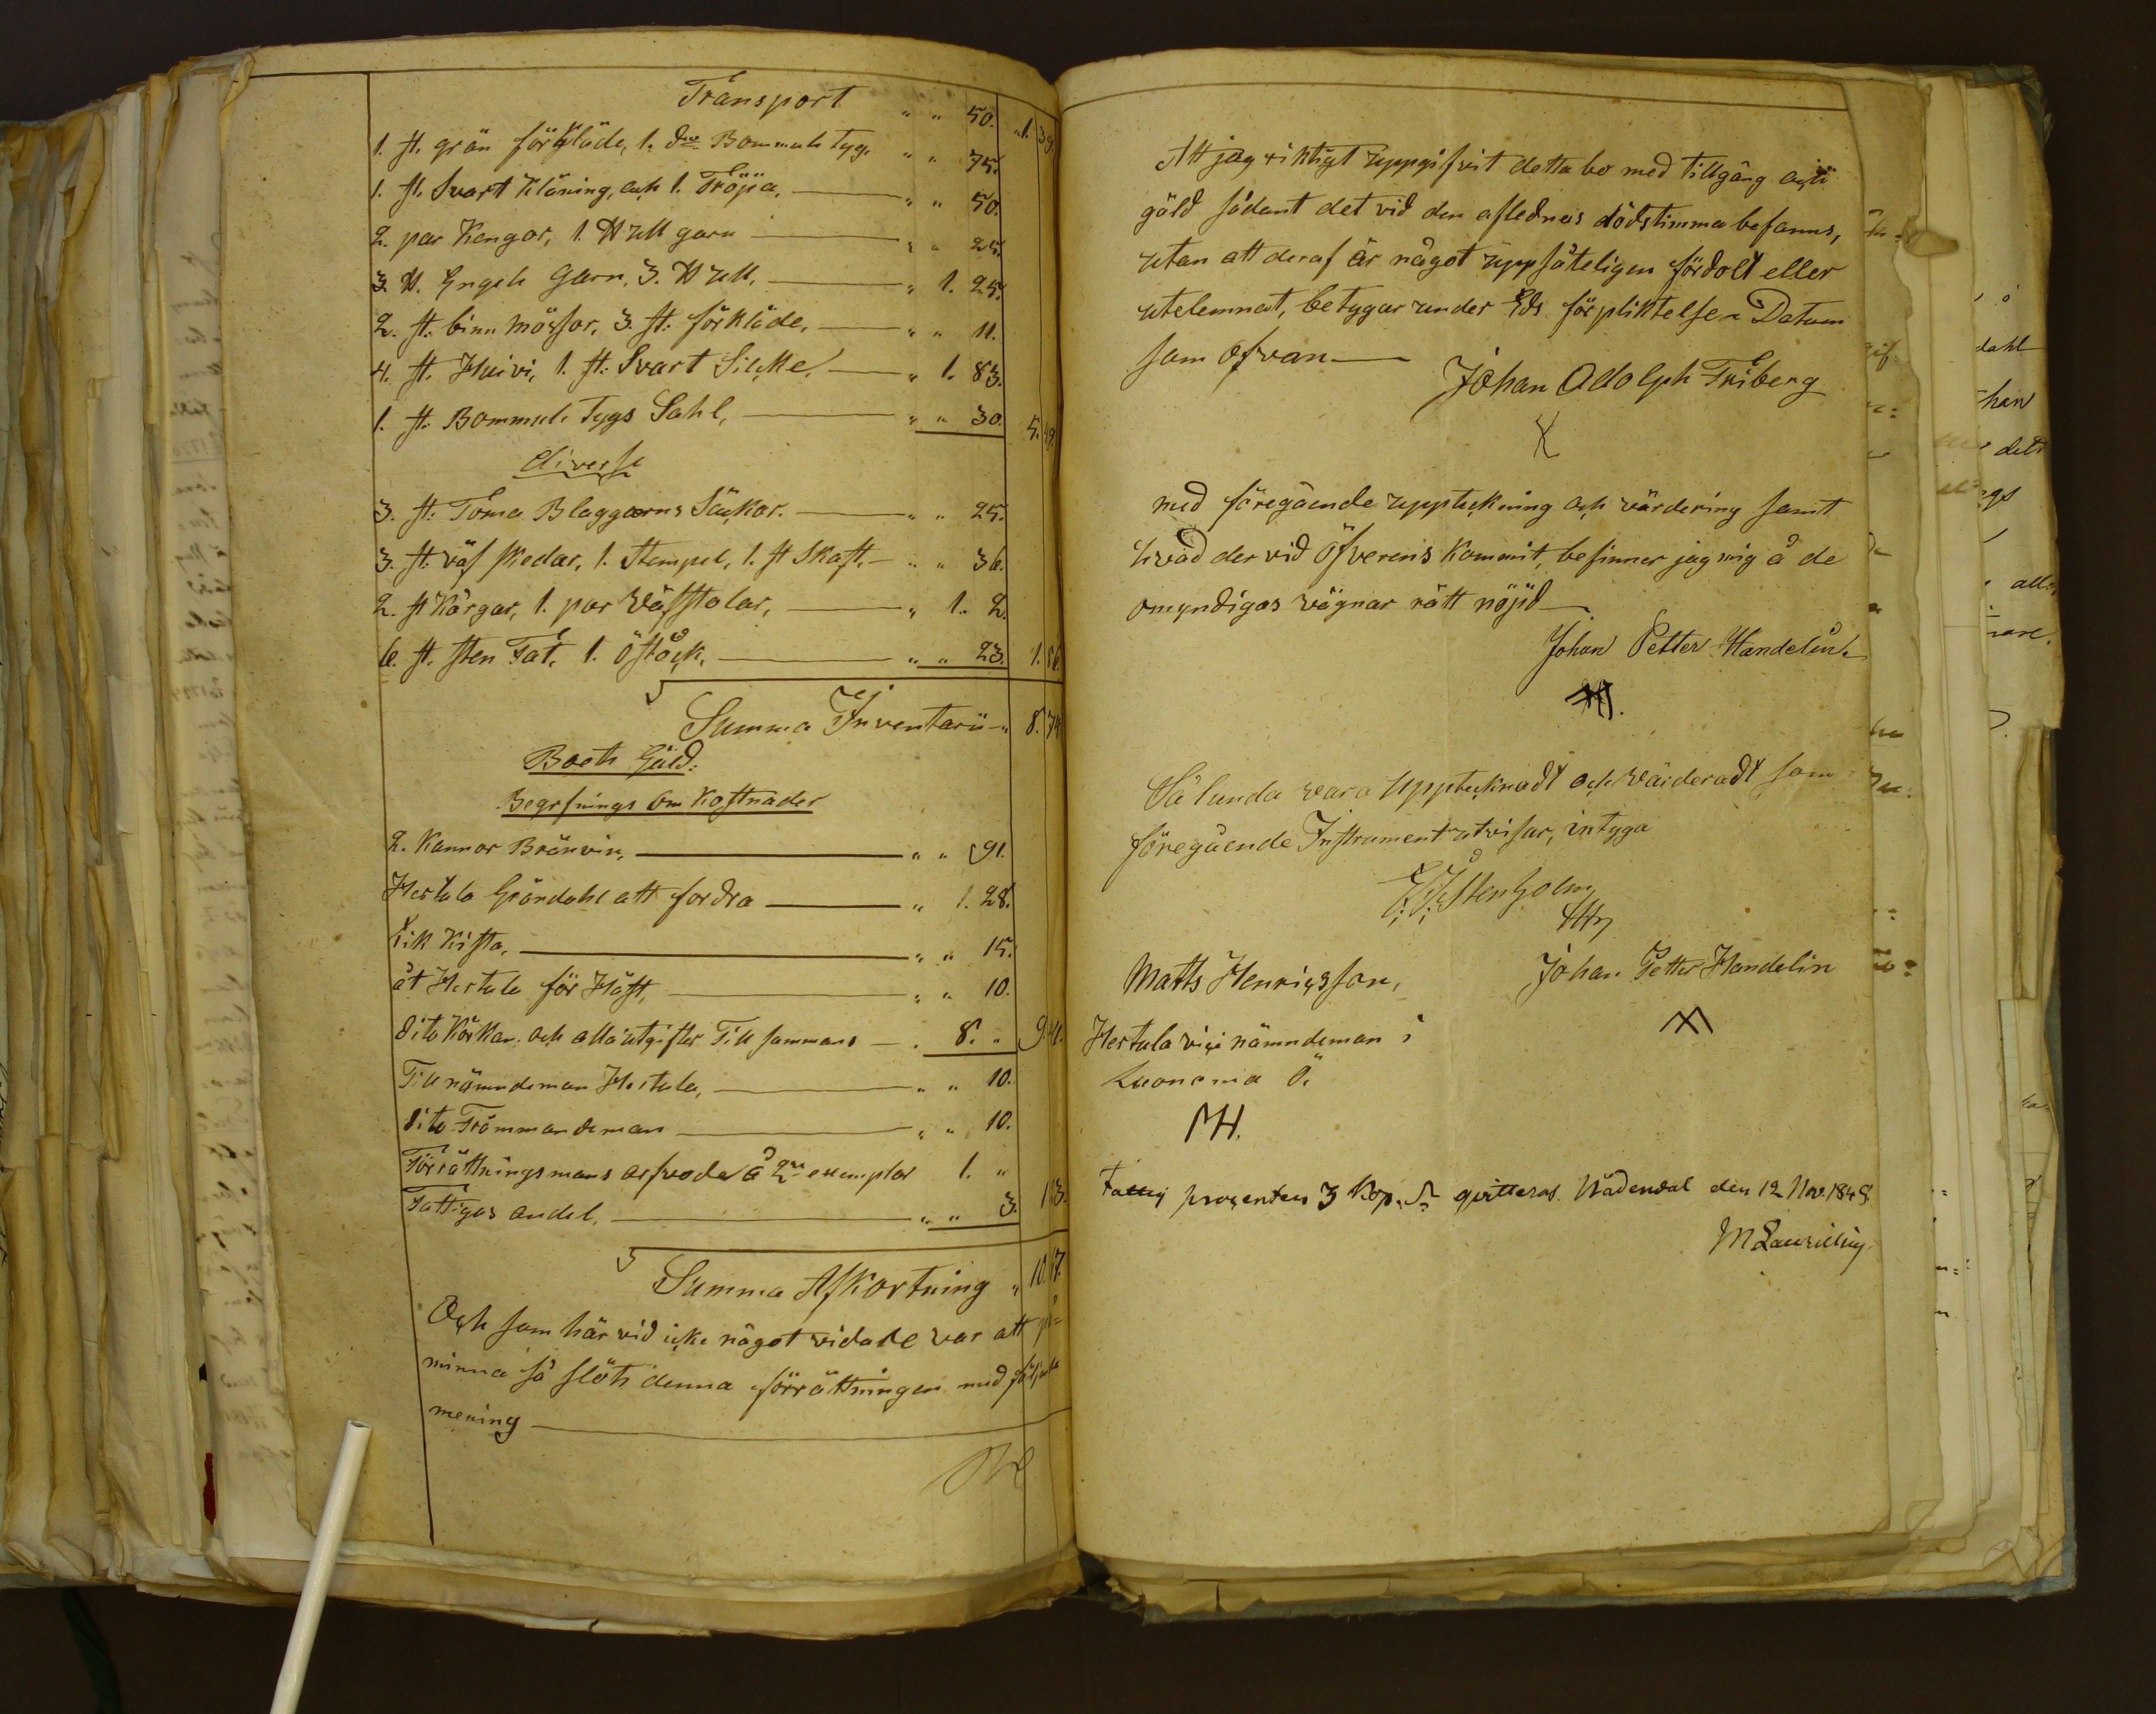 Transport " " 50. " 1. 39.
1. st. grön förkläde, 1. do Bommuls tyg, " " 75.
1. st. Svart Klöning, och 1. Tröija, " " 50.
2. par Kengor, 1. ℔ ull garn " " 25.
3. ℔. Engels Garn, 3. ℔ ull, " 1. 25.
2. st. binn mössor, 3. st: förkläde, " " 11.
4. st. Huivi, 1. st: Svart Silcke, " 1. 83.
1. st: Bommuls Tygs Sahl, " " 30. 5. 49.
diverse
3. st: Toma Blaggarns Säckar. " " 25.
3. st: väf skedar, 1. Stempel, 1. st Skaft, " " 36.
2. st Kårgar, 1. par Väfstolar, " 1. 2.
6. st. sten Fat, 1. Öståck, " " 23. 1. 86.
Summa Inventarii " 8. 74
Boets Gäld:
Begrfnings Om Kostnader
2. Kannor Bränvin, " " 91.
Hertula Gröndahl att fordra " 1. 28.
Lik Kista, " " 15.
åt Hertula för Häst, " " 10.
dito Körkan och alla utgifter Till sammans " 8. "
Till nämndeman Hertula, " " 10.
dito Frömmandeman " " 10.
Förrättningsmans arfvode å 2ne exemplar 1. "
Fattigas andel, " " 3. 1. 3.
Summa Afkortning " 10. 17.
Och som här vid icke något vidare var att på=
minna så slöts denna förrättningen med följande
mening
Att jag riktigt uppgifvit detta bo med tillgång och
gäld sådant det vid den aflednas dödstimma befanns,
utan att deraf är något uppsåteligen fördolt eller
utelemnat, betygar under Eds förpliktelse Datum
som ofvan
Johan Adolph Friberg
med föregående uppteckning och värdering samt
hvad der vid Öfverens Kommit, befinner jag mig å de
omyndigas vägnar rätt nöjd
Johan Petter Handelin
Så lunda vara Upptecknadt och Värderadt som
föregående Instrument utvisar, intyga
Stenholm
Matts Henricsson, Johan Petter Handelin
Hertula vice nämndeman i
Luonnonma Ö.
MH.
Fattig procenten 3 Kop. Sr qvitteras. Nådendal den 12 Nov. 1848.